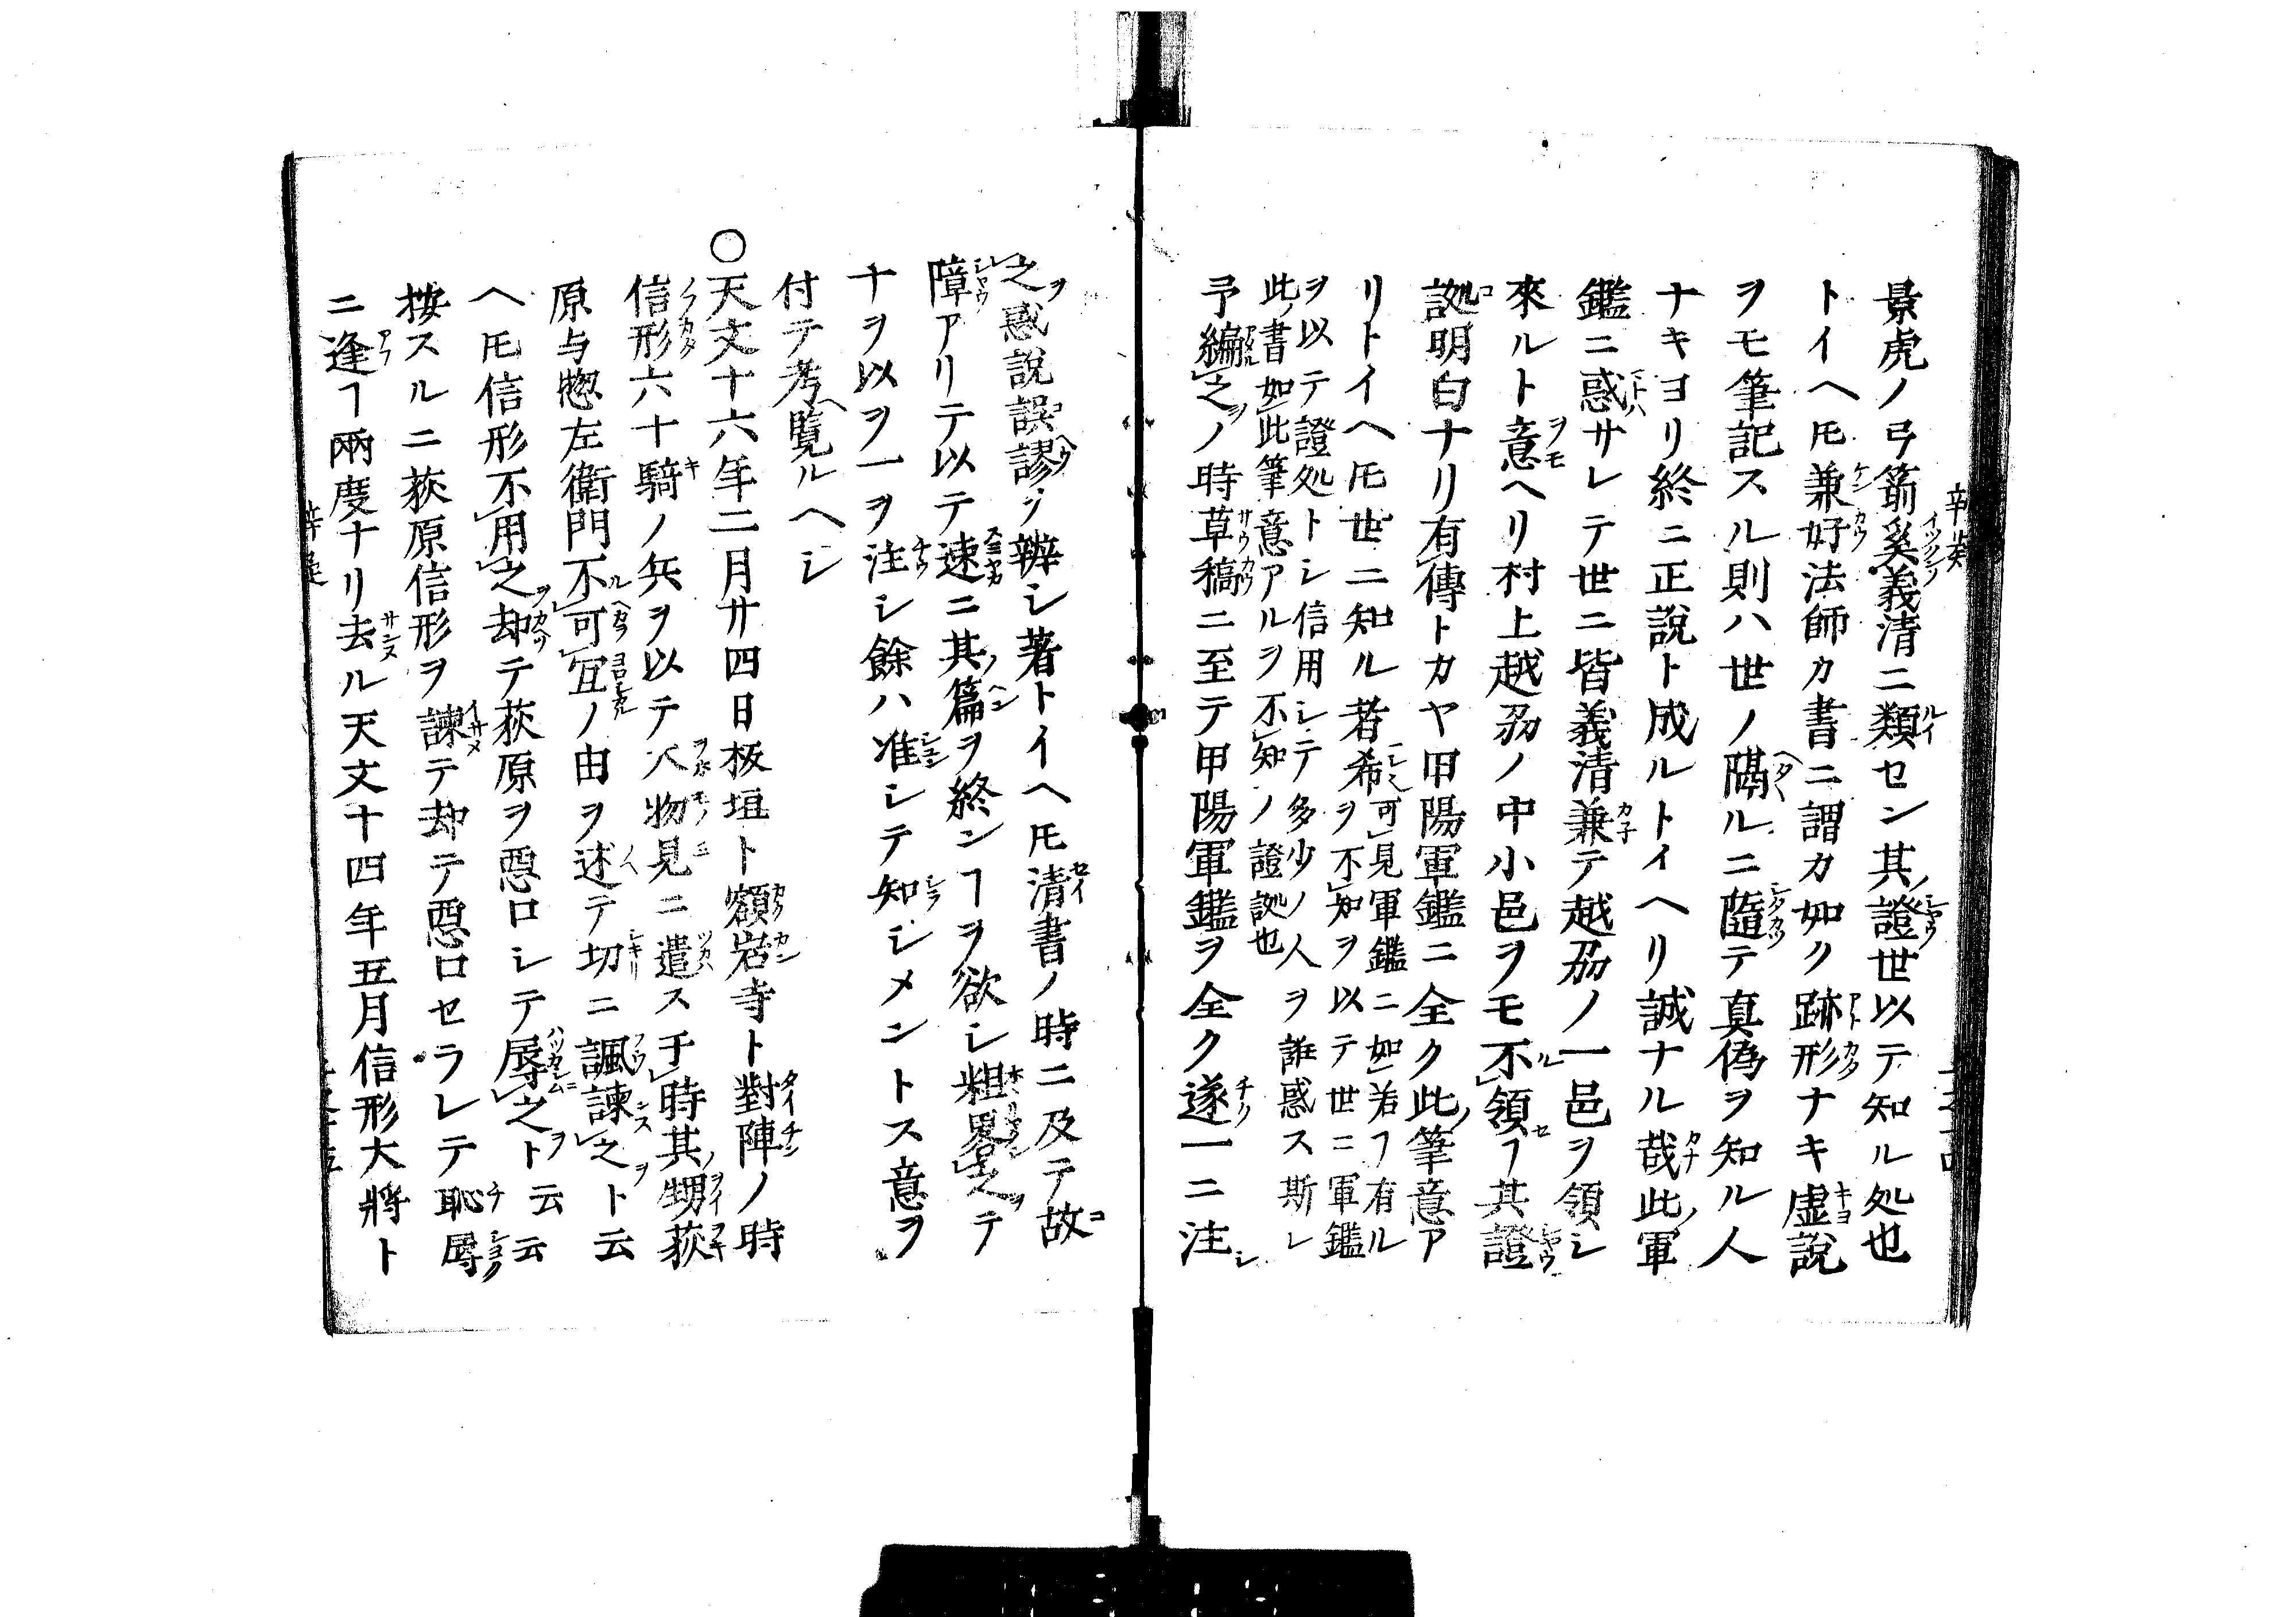 景虎ノ弓箭奚義清ニ類セン其證世以テ知ル処也
トイヘ𪜈兼好法師カ書ニ謂カ如ク跡形ナキ虚説
ヲモ筆記スル則ハ世ノ隔ルニ隨テ真偽ヲ知ル人
ナキヨリ終ニ正説ト成ルトイヘリ誠ナル哉此軍
鑑ニ惑サレテ世ニ皆義清兼テ越刕ノ一邑ヲ領シ
來ルト意ヘリ村上越刕ノ中小邑ヲモ不領ヿ其證
訑明白ナリ有傳トカヤ甲陽軍鑑ニ全ク此筆意ア
リトイヘ𪜈世ニ知ル者希可見軍鑑ニ如若ヿ有ル
ヲ不知ヲ以テ世ニ軍鑑
ヲ以テ證処トシ信用シテ多少ノ人ヲ誑惑ス斯レ
此書如此筆意アルヲ不知ノ證訑也
予編之ノ時草稿ニ至テ甲陽軍鑑ヲ全ク遂一ニ注シ
之惑説誤謬ヲ辨シ著トイヘ𪜈清書ノ時ニ及テ故
障アリテ以テ速ニ其篇ヲ終ンヿヲ欲シ粗畧之テ
十ヲ以ヲ一ヲ注シ餘ハ准シテ知シメントス意ヲ
付テ考覽ルヘシ
〇天文十六年二月廿四日板垣ト額岩寺ト對陣ノ時
信形六十騎ノ兵ヲ以テ大物見ニ遣ス于時其甥荻
原与惣左衛門不可宜ノ由ヲ述テ切ニ諷諫之ト云
ヘ𪜈信形不用之却テ荻原ヲ惡口シテ辱之ト云云
按スルニ荻原信形ヲ諫テ却テ惡口セラレテ恥辱
ニ逢ヿ兩度ナリ去ル天文十四年五月信形大將ト